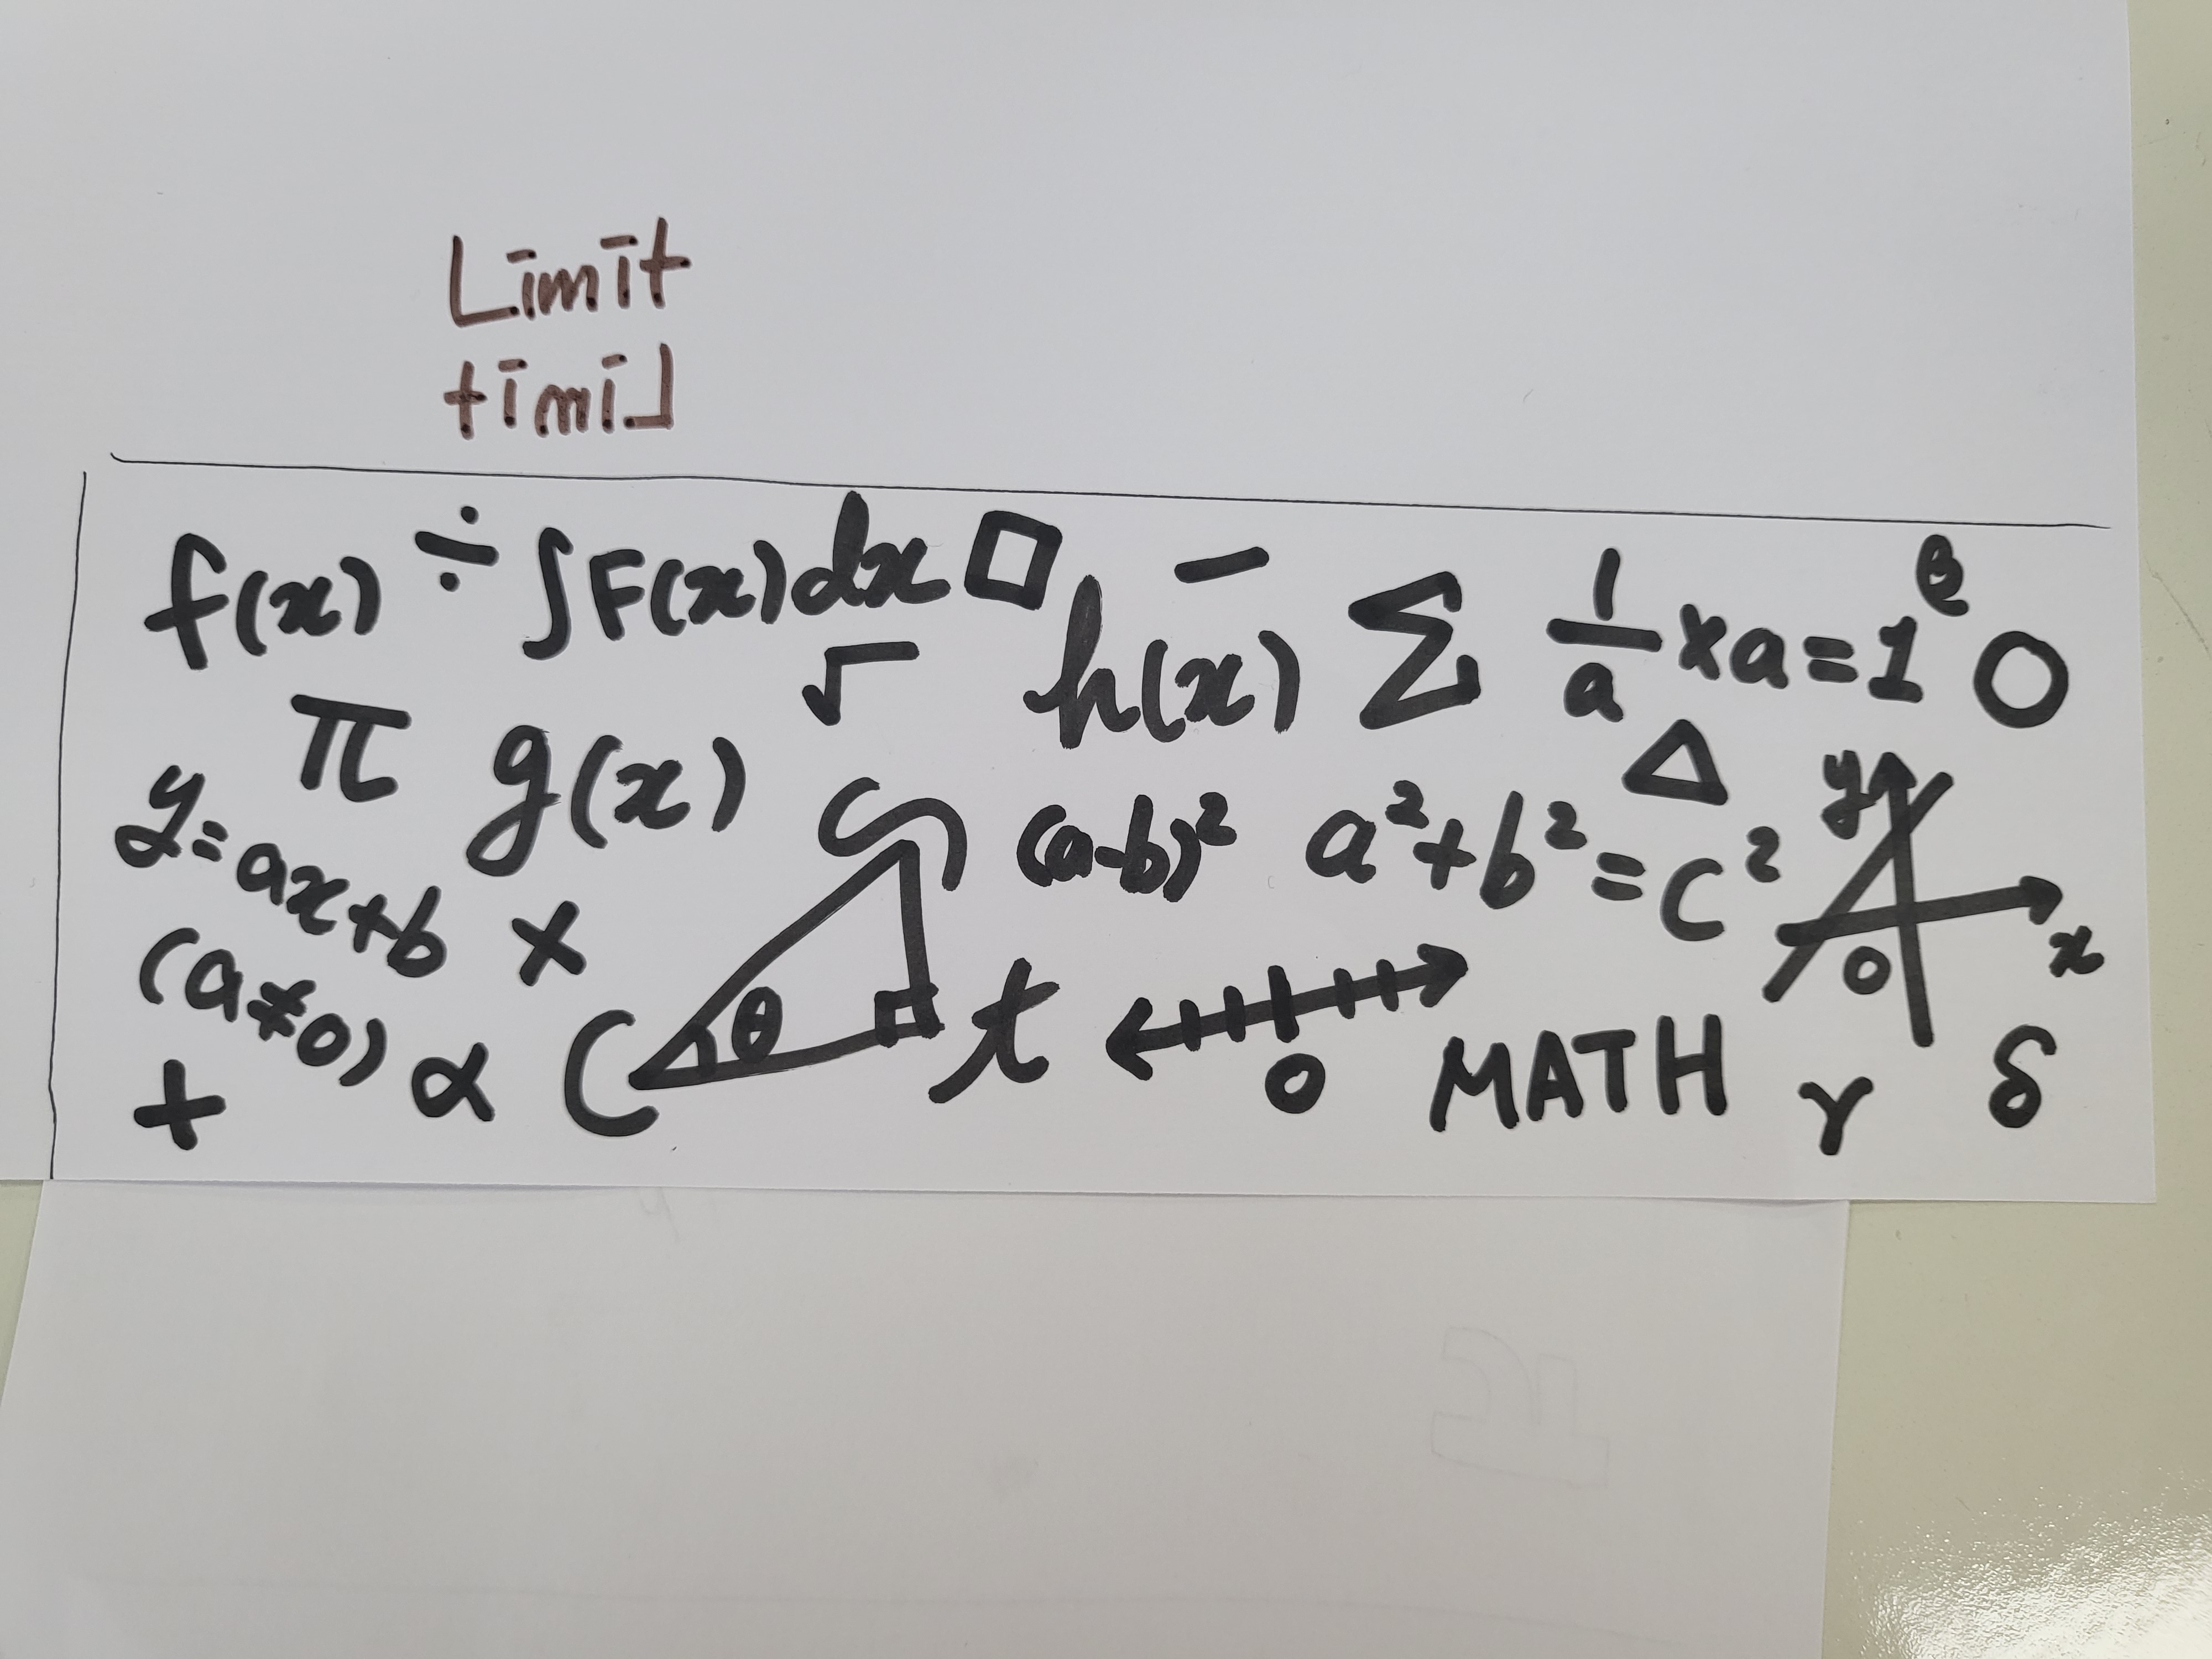 Limit
timil
f(x) ÷ ∫F(x)dx □ − Σ 1/a × a = 1 β ○
π g(x) √ h(x) △
y = ax + b × (a-b)² a² + b² = c² y x 0
(a ≠ 0) θ t 0
+ α MATH γ δ